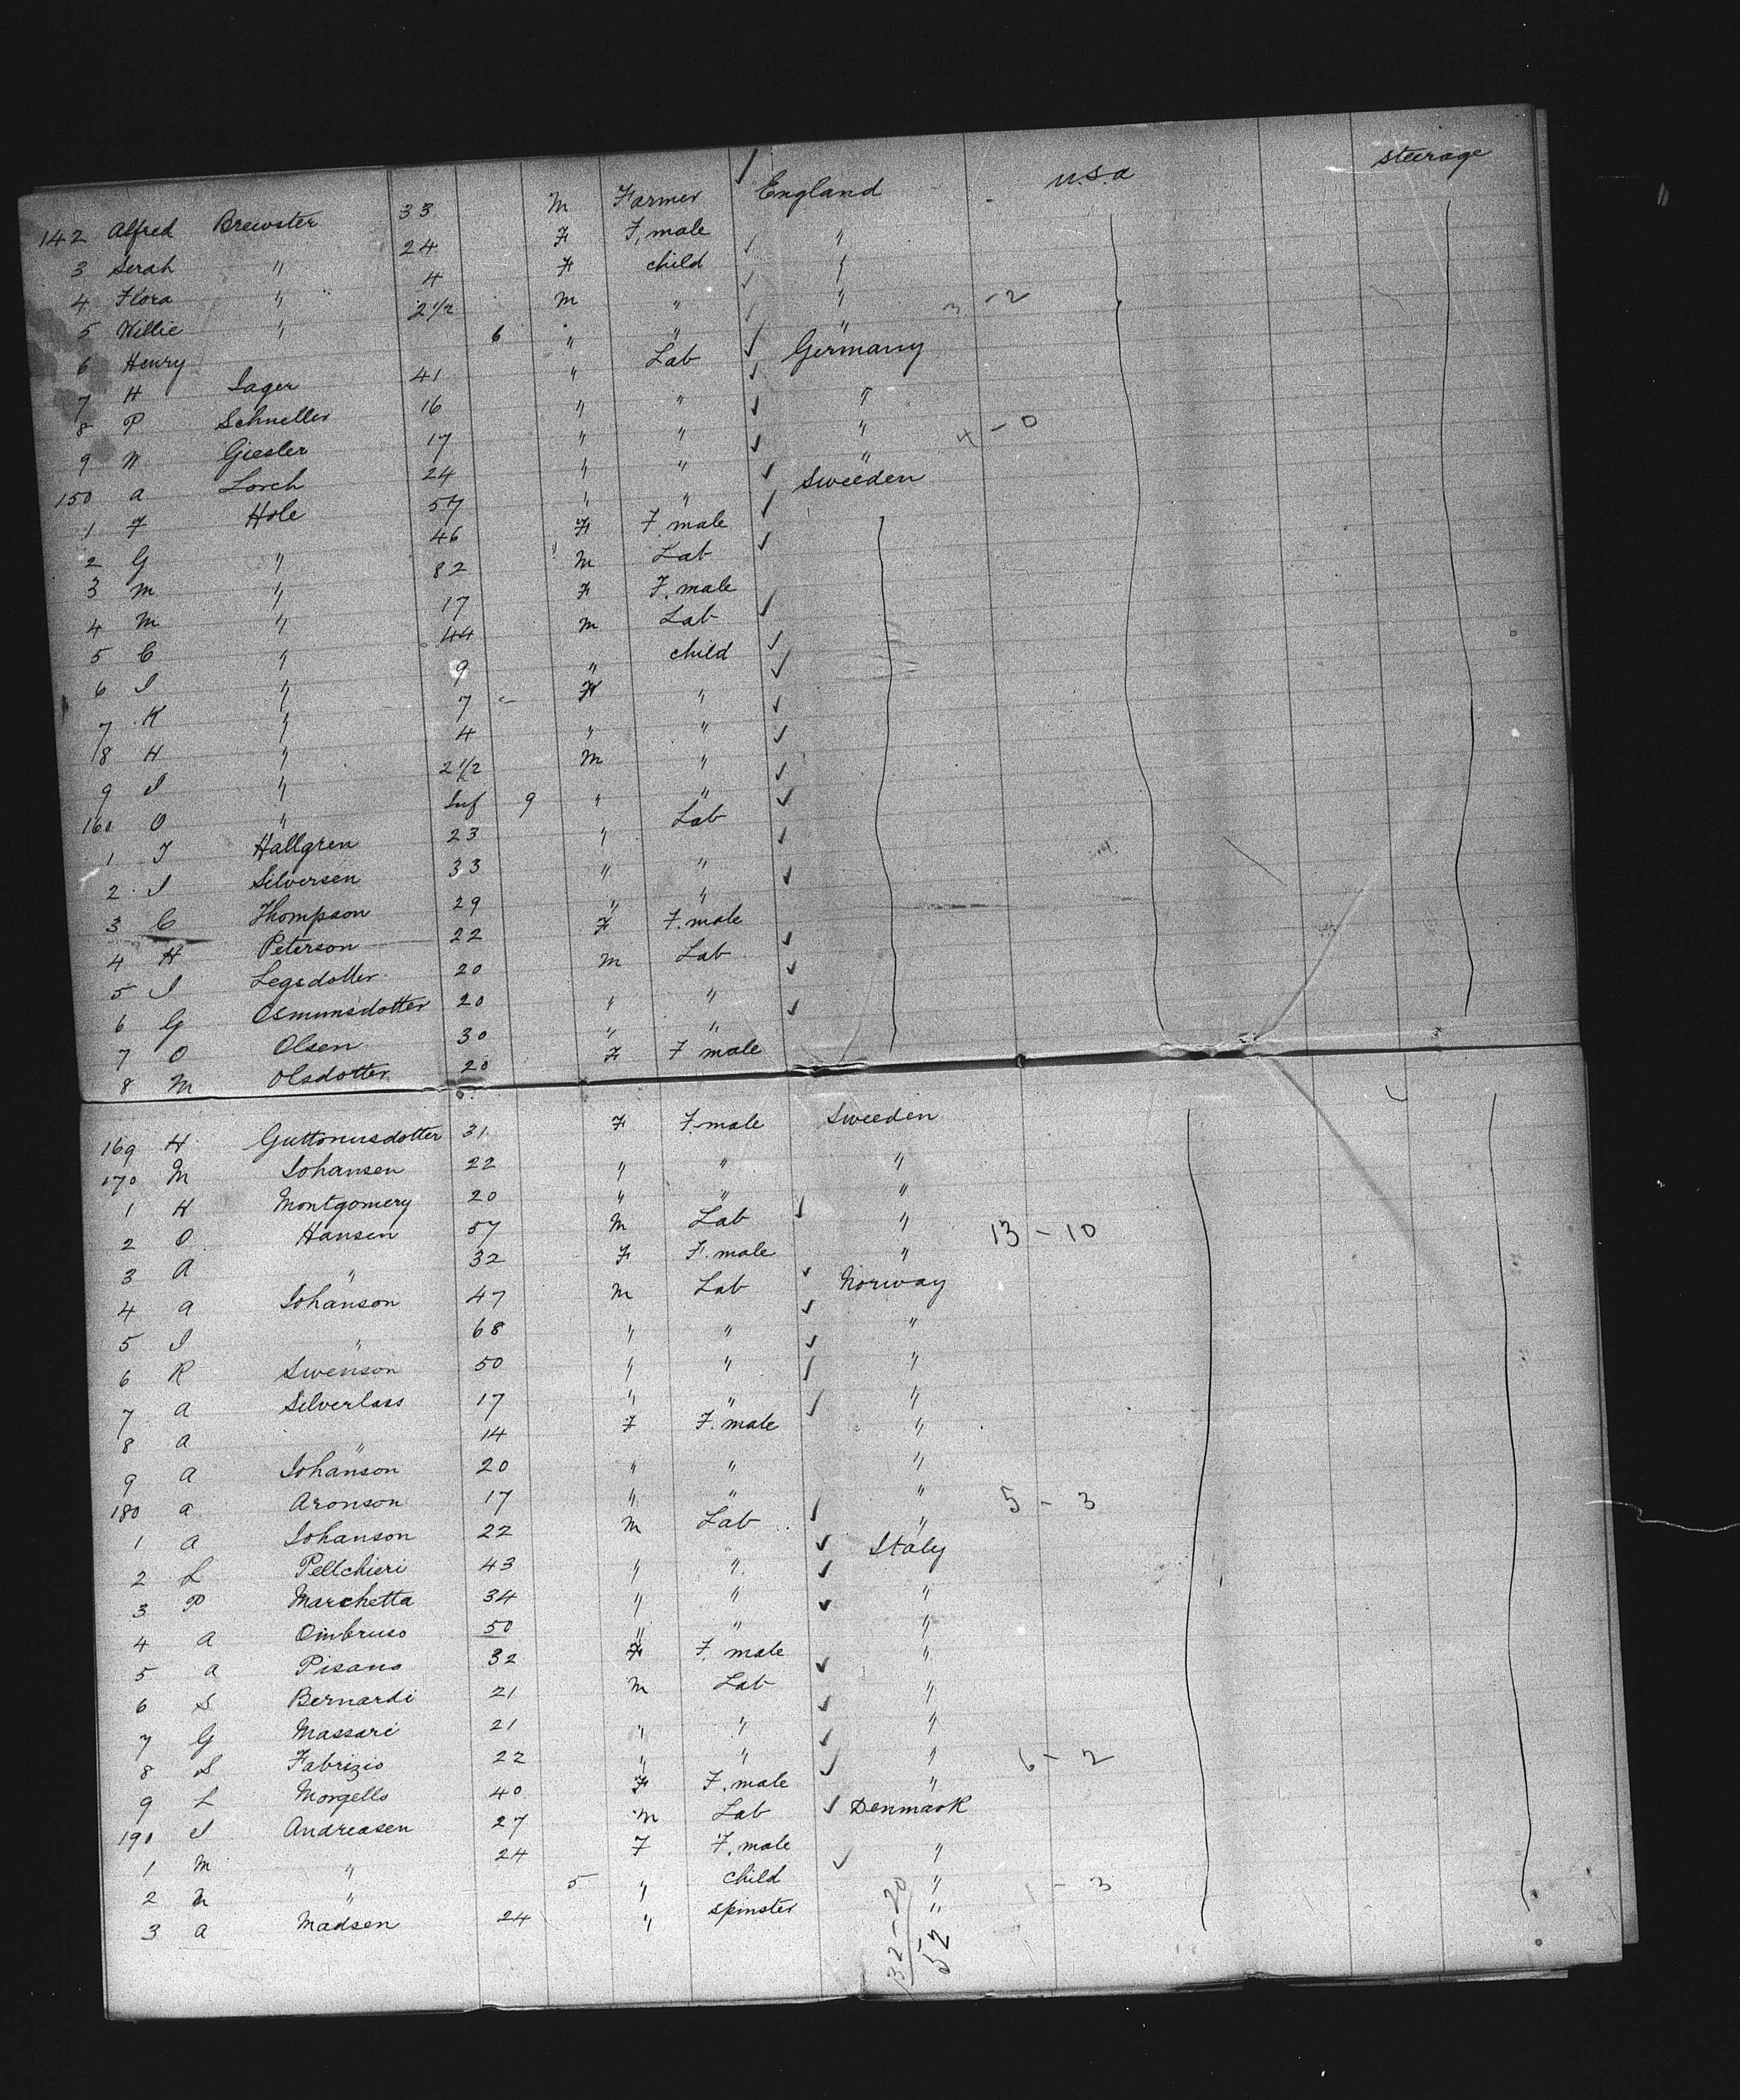 142 Alfred Brewster 33 M Farmer England U.S.a Steerage
3 Serah " 24 F F, male "
4 Flora " 4 F child "
5 Willie " 2 1/2 m " " 3 - 2
6 Henry 6 " " "
7 H Sager 41 " Lab Germany
8 P Schneller 16 " " "
9 W Giesler 17 " " " 4 - 0
150 a Lorch 24 " " "
1 F Hole 57 " " Sweeden
2 G " 46 F F. male
3 m " 82 m Lab
4 m " 17 F F. male
5 C " 44 m Lab
6 I " 9 " child
7 K " 7 F "
8 H " 4 " "
9 I " 2 1/2 m "
160 O " Inf 9 " "
1 J Hallgren 23 " Lab
2 I Silversen 33 " "
3 C Thompson 29 " "
4 H Peterson 22 F F. male
5 I Legsdotter 20 m Lab
6 G Osmunsdotter 20 " "
7 O Olsen 30 " "
8 M Olsdotter 20 F F male
169 H Guttonusdotter 31 F F. male Sweeden
170 M Johansen 22 " " "
1 H Montgomery 20 " " "
2 O Hansen 57 M Lab " 13 - 10
3 A " 32 F F. male "
4 a Johanson 47 m Lab Norway
5 I " 68 " " "
6 R Swenson 50 " " "
7 a Silverlass 17 " " "
8 a " 14 F F. male "
9 a Johanson 20 " " "
180 a Aronson 17 " " " 5 - 3
1 a Johanson 22 m Lab "
2 L Pellchieri 43 " " Italy
3 P Marchetta 34 " " "
4 a Ombruso 50 " " "
5 a Pisano 32 F F. male "
6 S Bernardi 21 m Lab "
7 G Massari 21 " " "
8 S Fabrizio 22 " " " 6 - 2
9 L Morgello 40 F F. male "
190 I Andreasen 27 m Lab Denmark
1 m " 24 F F. male "
2 n " 5 " child " 1 - 3
3 a Madsen 24 " spinster "
32 - 20
52